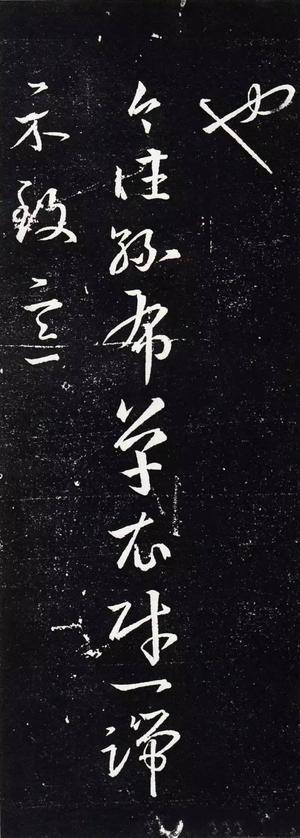 也
今往絲布單衣財一端
示致意